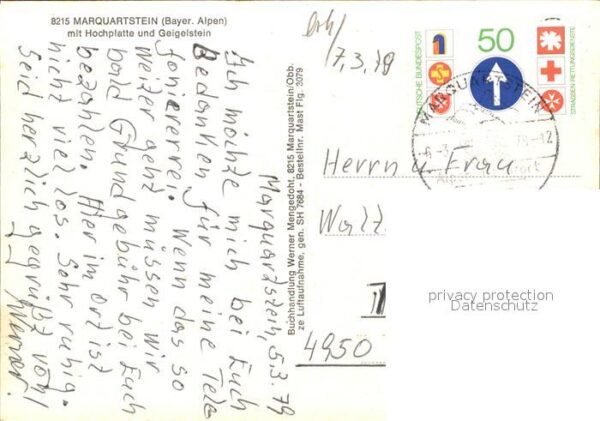 8215 MARQUARTSTEIN (Bayer. Alpen)
mit Hochplatte und Geigelstein
Marquartstein, 5.3.79
Ich möchte mich bei Euch
Bedanken für meine Tele
foniererei. Wenn das so
weiter geht müssen wir
bald Grundgebühr bei Euch
bezahlen. Hier im Ort ist
nicht viel los. Sehr ruhig.
Seid herzlich gegrüßt von
Werner.
Buchhandlung Werner Mengedoht, 8215 Marquartstein/Obb.
ze Luftaufnahme, gen. SH 7684 - Bestellnr. Mast Flg. 3079
7.3.79
DEUTSCHE BUNDESPOST
50
STRASSEN RETTUNGSDIENSTE
MARQUARTSTEIN
Herrn u. Frau
4950
privacy protection
Datenschutz